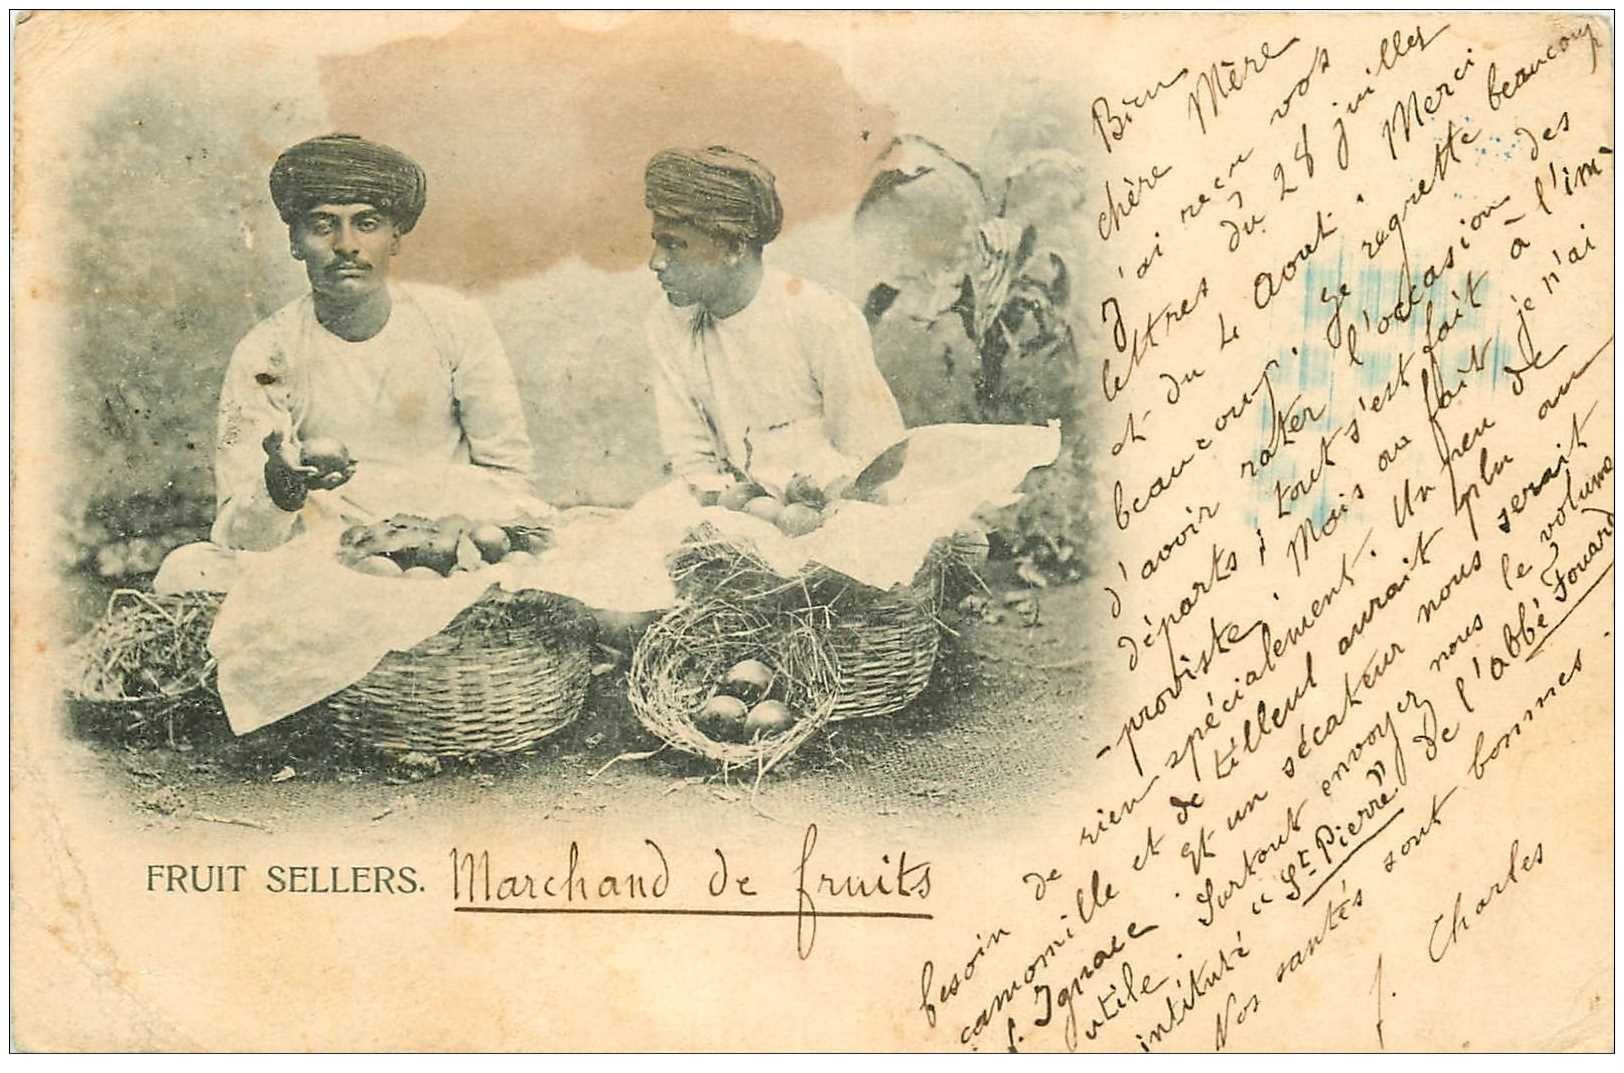 FRUIT SELLERS.
Marchand de fruits
Bien
chère Mère
J'ai reçu vos
lettres du 28 juillet
et du 4 Aout. Merci
beaucoup. Je regrette beaucoup
d'avoir rater l'occasion des
départs; tout s'est fait à l'im-
-proviste. Mais au fait je n'ai
besoin de rien spécialement. Un peu de
camomille et de tilleul aurait plu au
f. Ignace. Et un sécateur nous serait
utile. Surtout envoyez nous le volume
intitulé "St Pierre" de l'abbé Fouard
Nos santés sont bonnes.
f. Charles